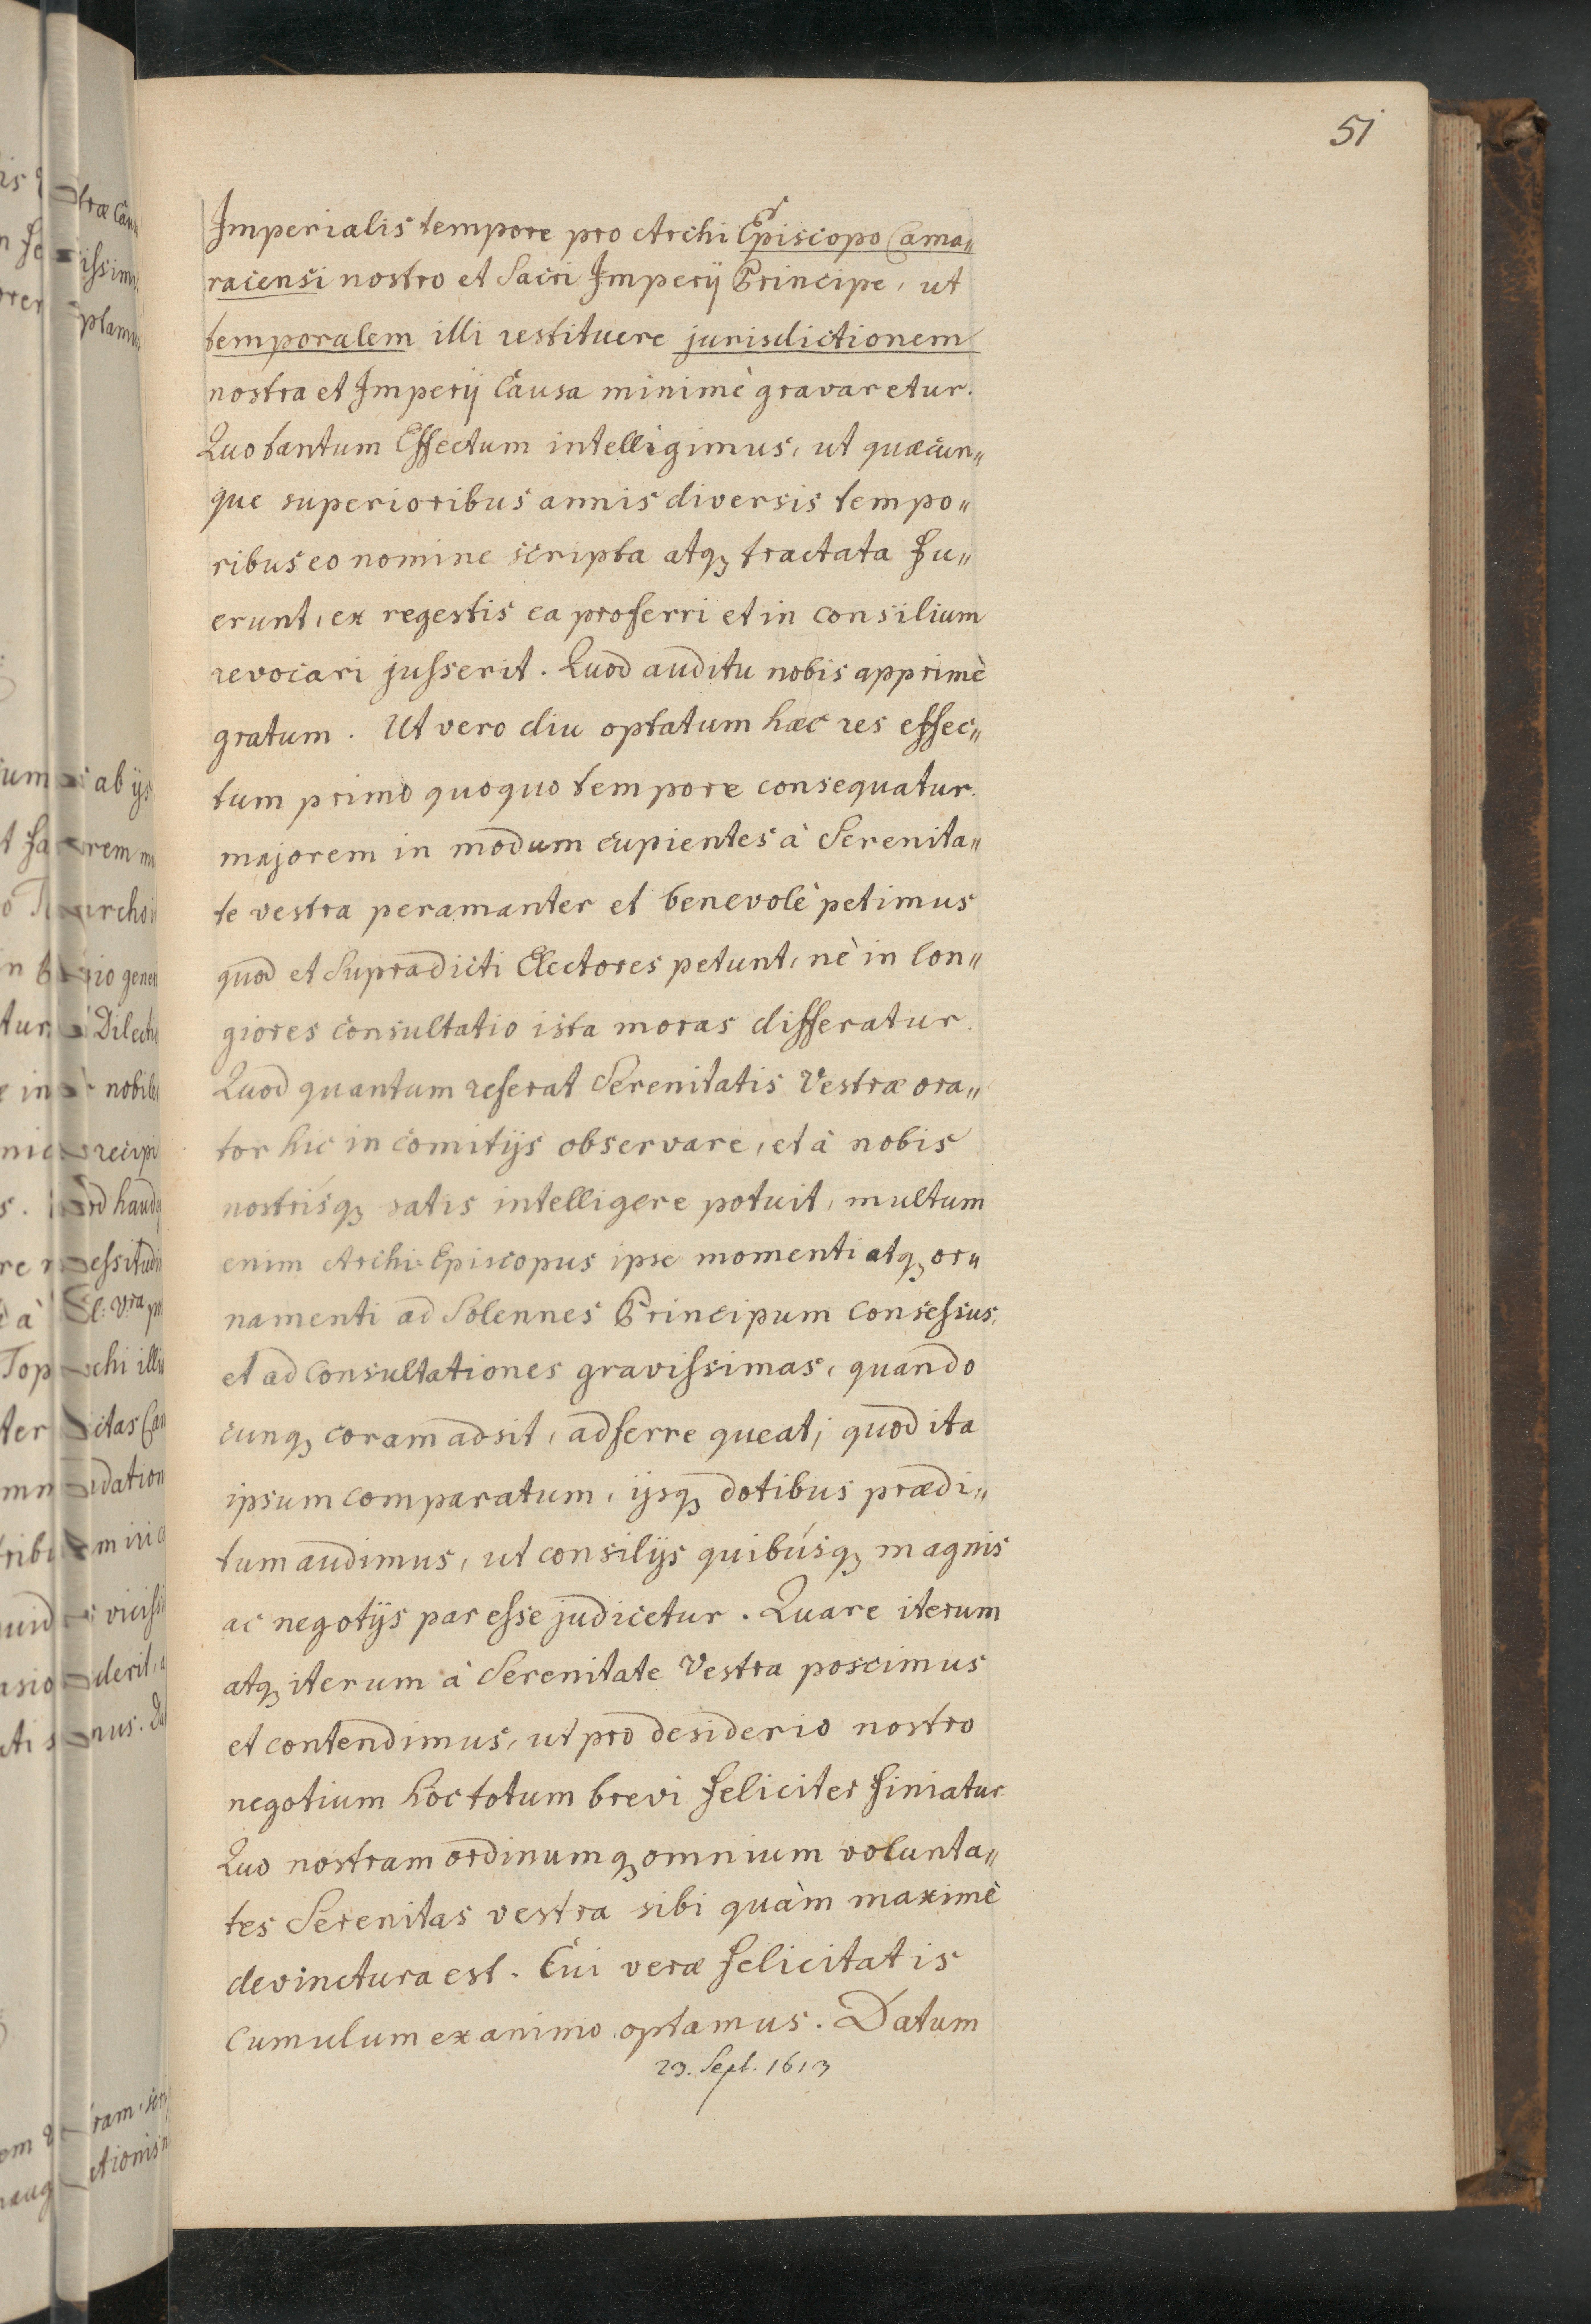 51
Imperialis tempore pro Archi Episcopo Cama„
racensi nostro et Sacri Imperij Principe, ut
temporalem illi restituere jurisdictionem
nostra et Imperij Causa minimè gravaretur.
Quo tantum Effectum intelligimus, ut quæcun„
que superioribus annis diversis tempo„
ribus eo nomine scripta atqꝫ tractata fu„
erunt, ex regestis ea proferri et in consilium
revocari jusserit. Quod auditu nobis apprimè
gratum. Ut vero diu optatum hæc res effec„
tum primo quoquo tempore consequatur.
majorem in modum cupientes à Serenita„
te vestra peramanter et benevolè petimus
quod et Supradicti Electores petunt, nè in lon„
giores consultatio ista moras differatur.
Quod quantum referat Serenitatis Vestræ ora„
tor hic in comitijs observare, et à nobis
nostrisqꝫ satis intelligere potuit, multum
enim Archi-Episcopus ipse momenti atqꝫ or„
namenti ad Solennes Principum Consessus,
et ad Consultationes gravissimas, quando
cunqꝫ coram adsit, adferre queat; quod ita
ipsum comparatum, ijsqꝫ dotibus prædi„
tum audimus, ut consilijs quibúsqꝫ magnis
ac negotijs par esse judicetur. Quare iterum
atqꝫ iterum à Serenitate Vestra poscimus
et contendimus, ut pro desiderio nostro
negotium hoc totum brevi feliciter finiatur
Quo nostram ordinumqꝫ omnium volunta„
tes Serenitas vestra sibi quàm maximè
devinctura est. Cui veræ felicitatis
cumulum ex animo optamus. Datum
23. Sept. 1613